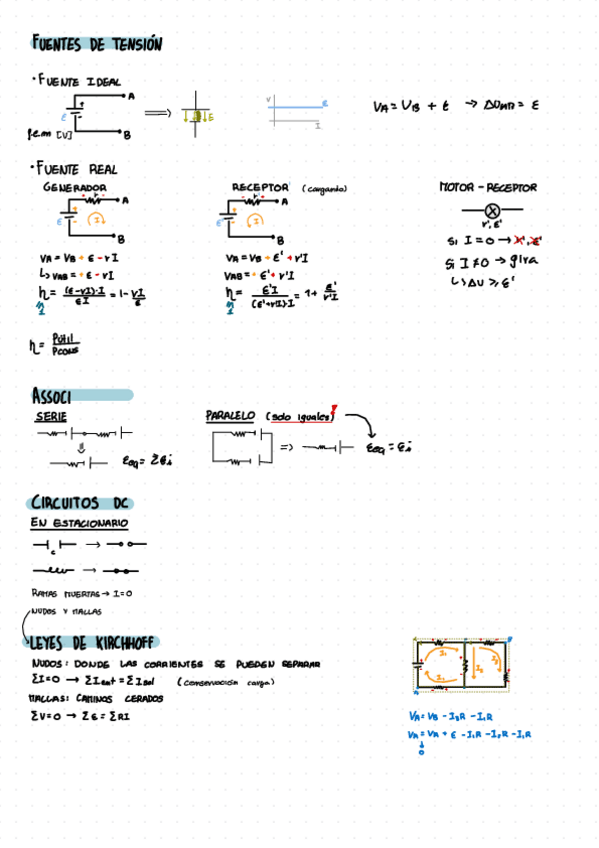 FUENTES DE TENSIÓN
· FUENTE IDEAL
A
ε
f.e.m [V]
B
⟹
ε
V
ε
I
VA = VB + ε → ΔVAB = ε
· FUENTE REAL
GENERADOR
A
ε
I
B
VA = VB + ε - rI
↳ VAB = + ε - rI
η = (ε-rI)·I / εI = 1 - rI/ε
RECEPTOR (cargando)
A
ε
I
B
VA = VB + ε' + r'I
VAB = + ε' + r'I
η = ε'I / (ε'+r'I)·I = 1 + ε'/r'I
MOTOR - RECEPTOR
r', ε'
Si I = 0 → r', ε'
Si I ≠ 0 → gira
↳ ΔV ≥ ε'
η = Pútil / Pcons
ASSOCI
SERIE
εeq = Σεi
PARALELO (solo iguales)
=>
εeq = εi
CIRCUITOS DC
EN ESTACIONARIO
C
→
→
RAMAS MUERTAS → I=0
NUDOS Y MALLAS
LEYES DE KIRCHHOFF
NUDOS: DONDE LAS CORRIENTES SE PUEDEN SEPARAR
ΣI=0 → ΣIent = ΣIsal (conservación carga)
MALLAS: CAMINOS CERADOS
ΣV=0 → Σε = ΣRI
I1
I1
I2
I3
VA = VB - I3R - I1R
VA = VA + ε - I1R - I2R - I1R
0